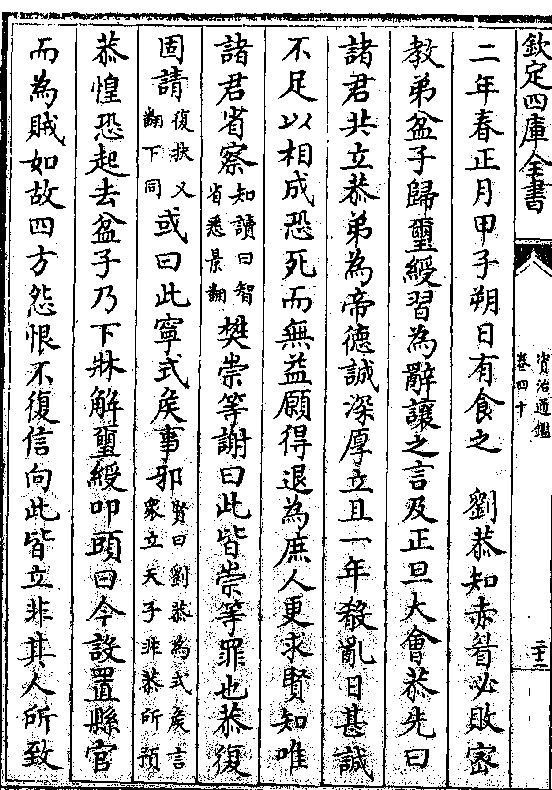 欽定四庫全書
資治通鑑
卷四十
二十二
二年春正月甲子朔日有食之　劉恭知赤眉必敗密
教弟盆子歸璽綬習為辭讓之言及正旦大會恭先曰
諸君共立恭弟為帝德誠深厚立且一年殽亂日甚誠
不足以相成恐死而無益願得退為庶人更求賢知唯
諸君省察知讀曰智省悉景翻樊崇等謝曰此皆崇等罪也恭復
固請復扶又翻下同或曰此寧式矦事邪賢曰劉恭為式矦言衆立天子非恭所預
恭惶恐起去盆子乃下牀解璽綬叩頭曰今設置縣官
而為賊如故四方怨恨不復信向此皆立非其人所致